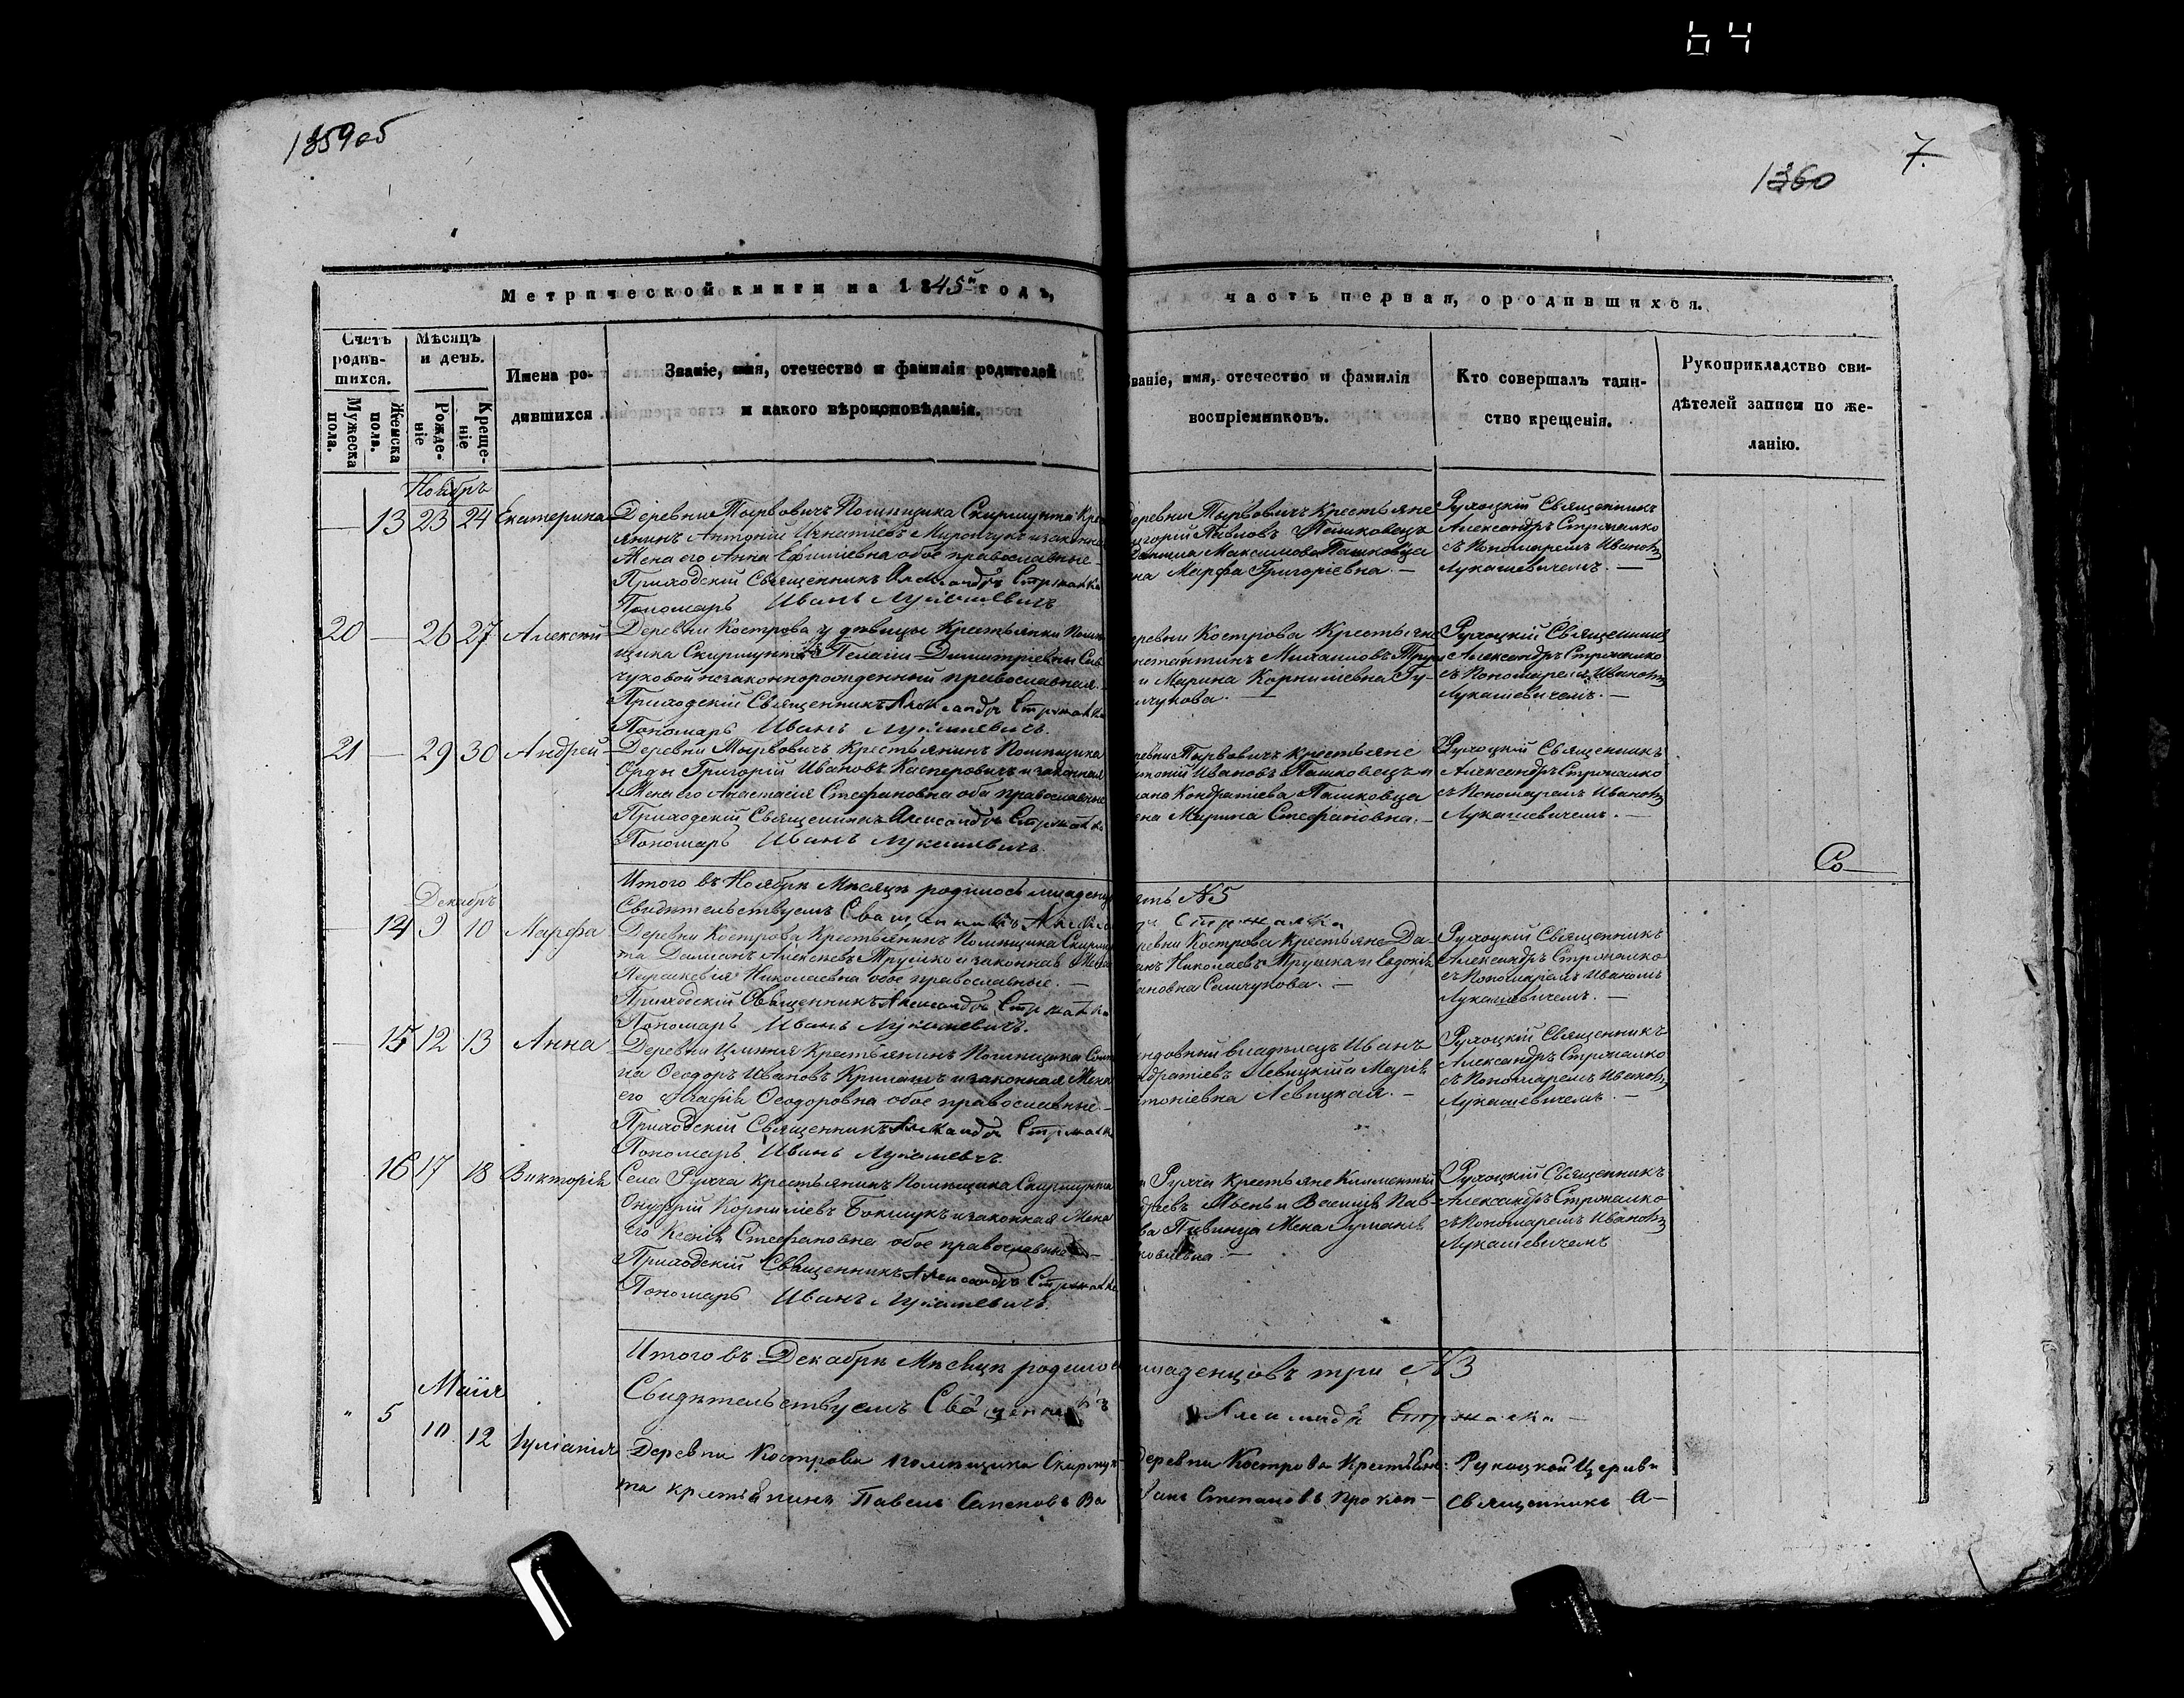 64
1359об
1360
7.
Метрической книги на 1845й годъ,
часть первая, о родившихся.
Счетъ родив-шихся.
Мѣсяцъ и день.
Мужеска пола.
Женска пола.
Рожде-ніе
Креще-ніе
Имена ро-
дившихся
Званіе, имя, отечество и фамилія родителей
и какого вѣроисповѣданія.
Званіе, имя, отечество и фамилія
воспріемниковъ.
Кто совершалъ таин-
ство крещенія.
Рукоприкладство сви-
дѣтелей записи по же-
ланію.
Ноябрь
13 23 24 Екатерина
Деревни Тырвовичъ Помѣщика Скирмунта Кре
янинъ Антоній Игнатіевъ Мирончукъ и законная
Жена его Анна Ефимиевна обое православные
Приходскій Священникъ Александръ Стржалко
Пономарь Иванъ Лукашевичъ
деревни Тырвовичъ Крестьяне
игорій Павловъ Пашковецъ
Максимова Пашковца
на Марфа Григоріевна. —
Священникъ
Александръ Стржалко
съ Пономаремъ Иваномъ
Лукашевичемъ. —
20 — 26 27 Алексѣй
Деревни Кострова у дѣвицы Крестьянки Помѣ
щика Скирмунта Пелагіи Димитріевны Сав
чуковой незаконнорожденный православная.
Приходскій Священникъ Александръ Стржалко
Пономарь Иванъ Лукашевичъ.
еревни Костровa Крестьяне
нстантинъ Михаиловъ
и Марина Корнилиевна
чукова. —
Священникъ
Александръ Стржалко
съ Пономаремъ Иваномъ
Лукашевичемъ. —
21 — 29 30 Андрей
Деревни Тырвовичъ Крестьянинъ Помѣщика
Орды Григорій Ивановъ Касперовичъ и законная
Жена его Анастасія Стефановна оба православные
Приходскій Священникъ Александръ Стржалко
Пономарь Иванъ Лукашевичъ
ревни Тырвовичъ Крестьяне
тоній Ивановъ Пашковецъ и
Кондратіева Пашковца
ена Марина Стефановна. —
Священникъ
Александръ Стржалко
съ Пономаремъ Иваномъ
Лукашевичемъ. —
Со
Итого въ Ноябрѣ Мѣсяцѣ родилось младенц
ять №5
Декабрь
Свидѣтельствуемъ Священникъ Алекса
Стржалко
14 9 10 Марфа
Деревни Кострова Крестьянинъ Помѣщика Скирму
та Даміанъ Алексѣевъ Трушко и законная Жена
Параскевія Николаевна обое православные. —
Приходскій Священникъ Александръ Стржалко
Пономарь Иванъ Лукашевичъ.
ревни Кострова Крестьяне Да
анъ Николаевъ Трушка и Евдокія
ановна Савчукова. —
Священникъ
Александръ Стржалко
съ Пономаремъ Иваномъ
Лукашевичемъ. —
15 12 13 Анна
Деревни Крестьянинъ Помѣщика
Ѳеодоръ Ивановъ и законная Жена
его Агафія Ѳеодоровна обое православные —
Приходскій Священникъ Александръ Стржалко
Пономарь Иванъ Лукашевичъ.
владѣлецъ Иванъ
ндратіевъ Левицкій и Марія
тоніевна Левицкая. —
Священникъ
Александръ Стржалко
съ Пономаремъ Иваномъ
Лукашевичемъ. —
16 17 18 Викторія
Села Крестьянинъ Помѣщика Скирмунта
Онуфрій Корниліевъ Бокшукъ и законная Жена
его Ксенія Стефановна обое православные —
Приходскій Священникъ Александръ Стржалко
Пономарь Иванъ Лукашевичъ.
Крестьяне Климентій
и Василія Пав-
ва Жена Уліанія
ковлевна —
Священникъ
Александръ Стржалко
съ Пономаремъ Иваномъ
Лукашевичемъ
Итого въ Декабрѣ Мѣсяцѣ родило
младенцовъ три №3
Свидѣтельствуемъ Священникъ
Александръ Стржалко —
Маія
" 5 10 12 Іуліанія
Деревни Кострова помѣщика Скирмун-
та крестьянинъ Павелъ Семеновъ Ва
Деревни Кострова Крестьянъ:
Степановъ Прокоп-
Церкви
Священникъ А-